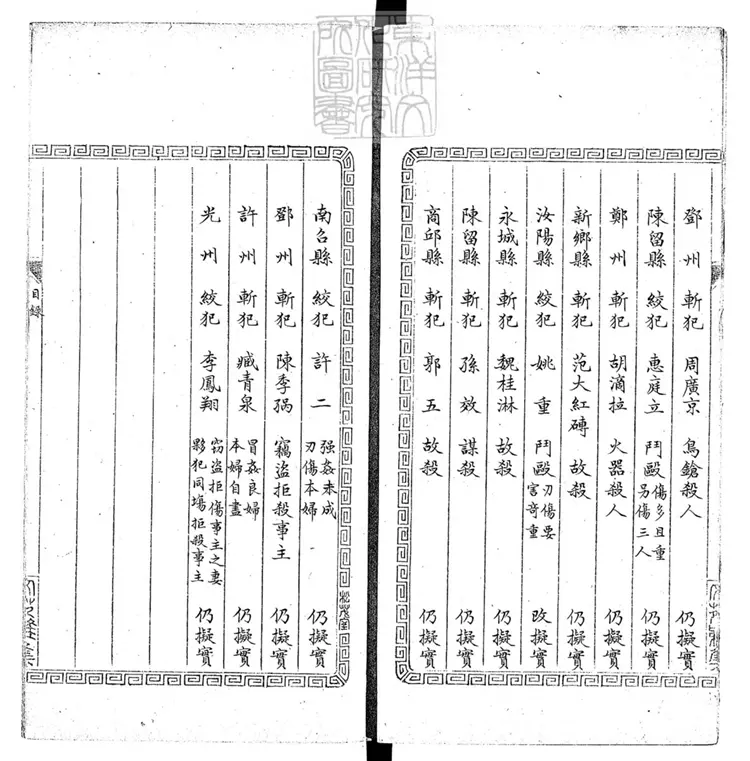 鄧州斬犯周廣京鳥鎗殺人仍擬實
陳留縣絞犯惠庭立鬥毆傷多且重另傷三人仍擬實
鄭州斬犯胡滴拉火器殺人仍擬實
新鄉縣斬犯范大紅磚故殺仍擬實
汝陽縣絞犯姚重鬥毆刃傷要害奇重改擬實
永城縣斬犯魏桂淋故殺仍擬實
陳留縣斬犯孫效謀殺仍擬實
商邱縣斬犯郭五故殺仍擬實
南召縣絞犯許二强姦未成刃傷本婦仍擬實
鄧州斬犯陳季㧓竊盜拒殺事主仍擬實
許州斬犯臧青泉冒姦良婦本婦自盡仍擬實
光州絞犯李鳳翔竊盜拒傷事主之妻夥犯同場拒殺事主仍擬實
目錄
松茂室